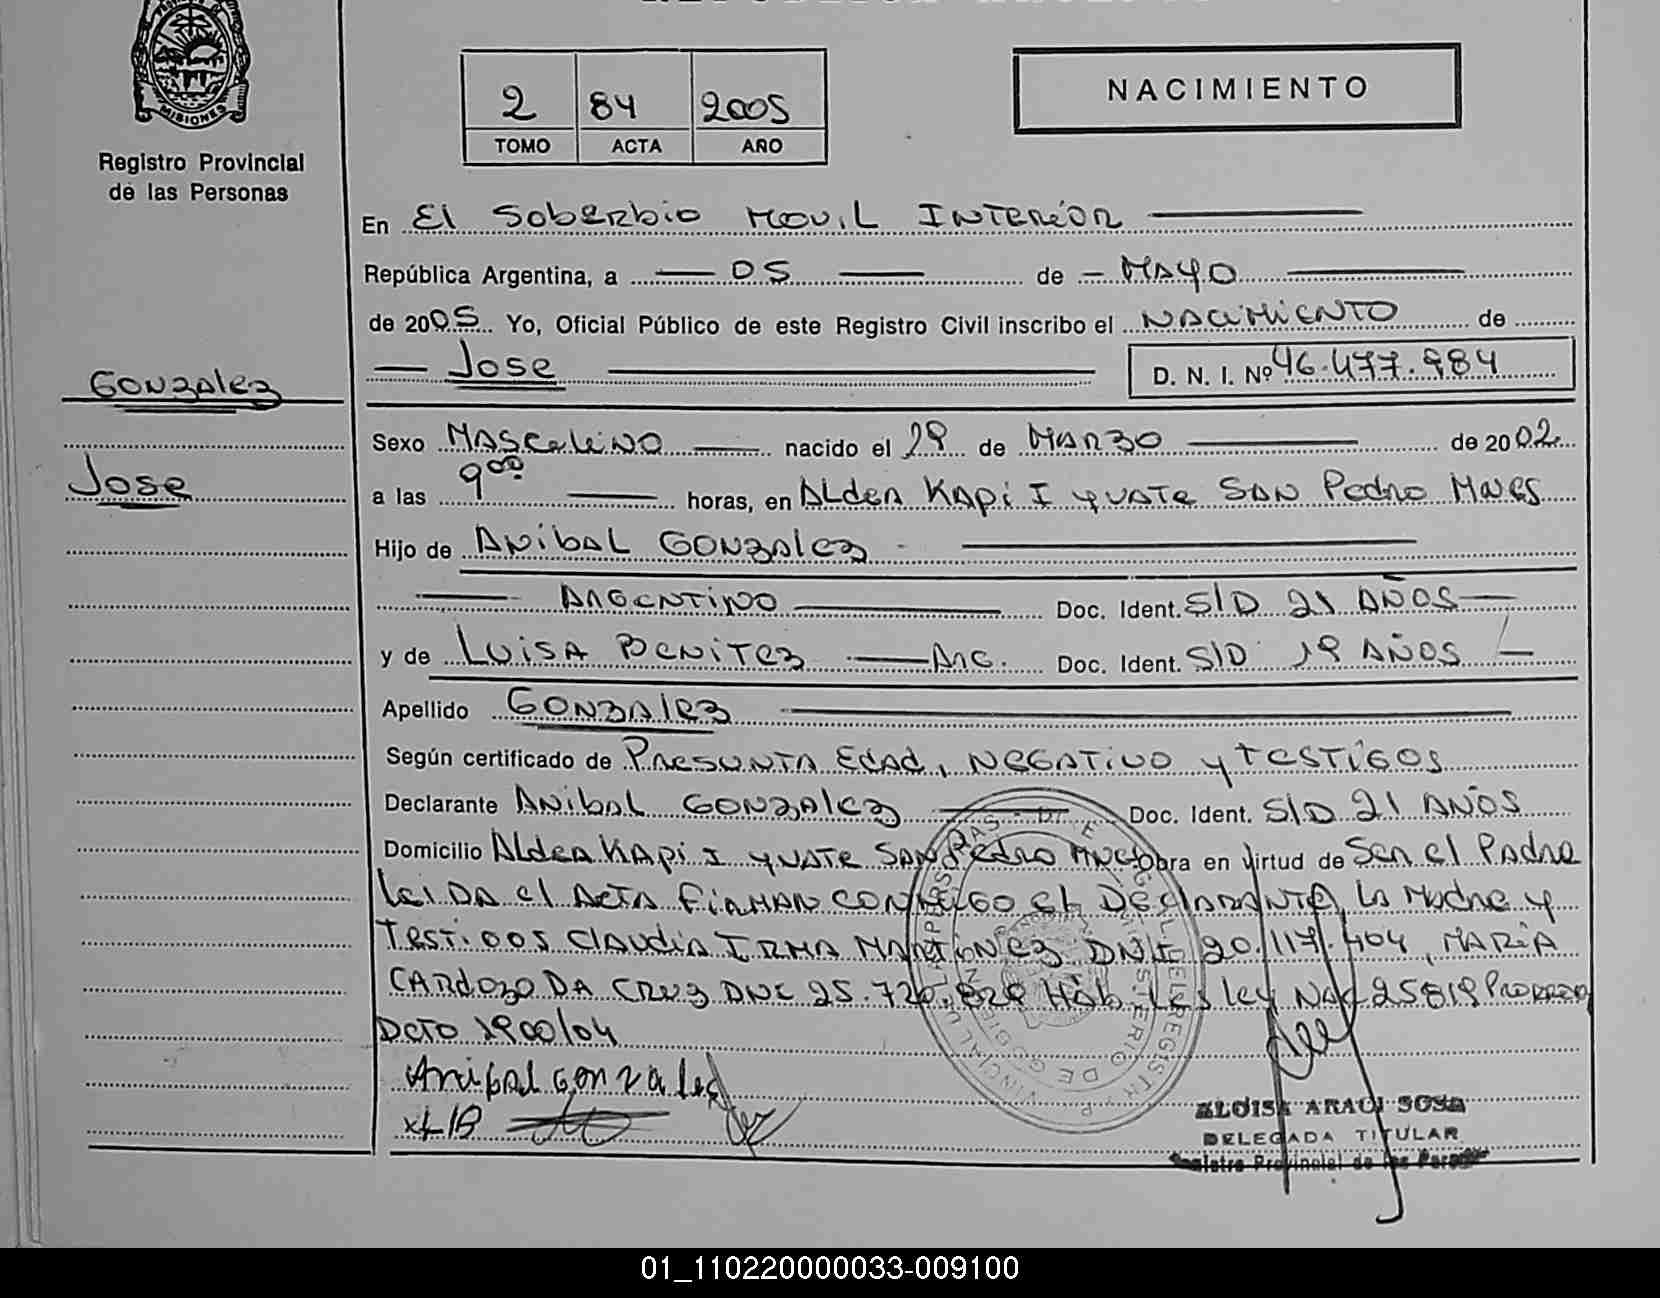 MISIONES
Registro Provincial
de las Personas
2 84 2005
TOMO ACTA AÑO
NACIMIENTO
En El Soberbio Movil Interior
República Argentina, a 05 de Mayo
de 2005 Yo, Oficial Público de este Registro Civil inscribo el Nacimiento de
Jose D. N. I. Nº 46.477.984
Gonzalez
Sexo Masculino nacido el 29 de Marzo de 2002
Jose
a las 9 00 horas, en Aldea Kapi I yvate San Pedro Mnes
Hijo de Anibal Gonzalez
Argentino Doc. Ident. S/D 21 AÑOS
y de Luisa Benitez Arg. Doc. Ident. S/D 19 AÑOS
Apellido Gonzalez
Según certificado de Presunta Edad, Negativo y testigos
Declarante Anibal Gonzalez Doc. Ident. S/D 21 AÑOS
Domicilio Aldea Kapi I yvate San Pedro Obra en virtud de Ser el Padre
leida el Acta firman conmigo el Declarante, la Madre y
Testigos Claudia Irma Martinez DNI 20.117.404, Maria
Cardozo Da Cruz DNI 25.720.829 Ley Nac 25819
Dcto 1900/04
Anibal Gonzales
ALOISA ARACI SOSA
DELEGADA TITULAR
Registro Provincial de las Personas
01_110220000033-009100